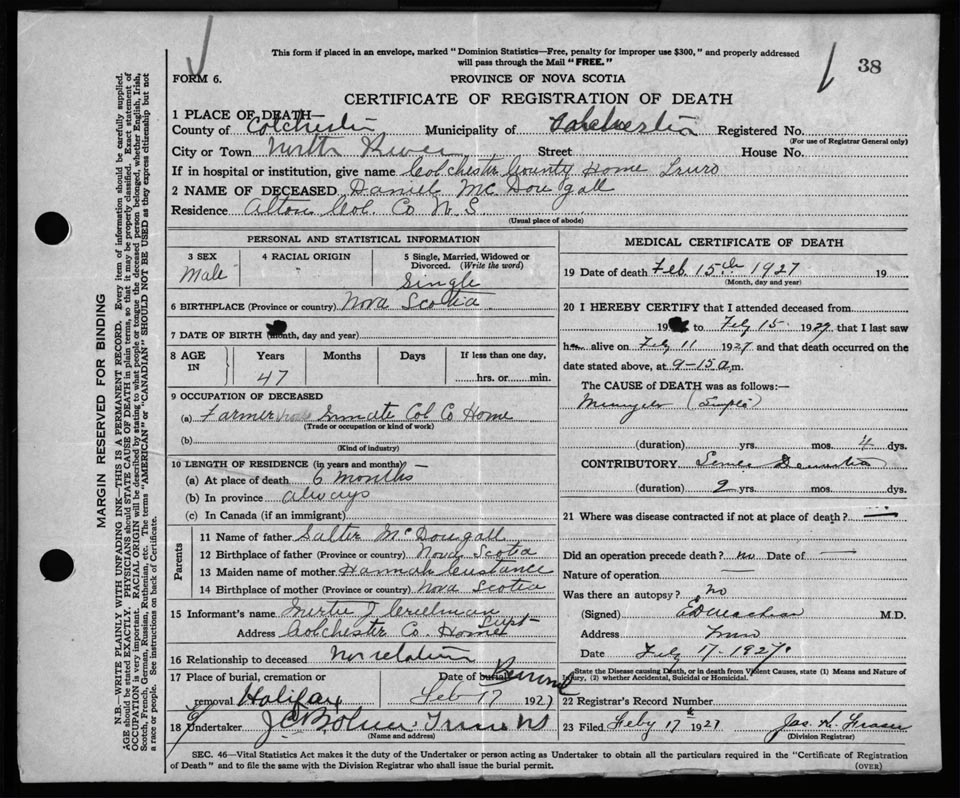 This form if placed in an envelope, marked "Dominion Statistics—Free, penalty for improper use $300," and properly addressed
will pass through the Mail "FREE."
38
FORM 6.
PROVINCE OF NOVA SCOTIA
CERTIFICATE OF REGISTRATION OF DEATH
1 PLACE OF DEATH—
County of Colchester Municipality of Colchester Registered No.
(For use of Registrar General only)
City or Town North River Street House No.
If in hospital or institution, give name Colchester County Home Truro
2 NAME OF DECEASED Daniel McDougall
Residence Alton Col. Co N.S.
(Usual place of abode)
PERSONAL AND STATISTICAL INFORMATION
3 SEX
Male
4 RACIAL ORIGIN
5 Single, Married, Widowed or
Divorced. (Write the word)
Single
6 BIRTHPLACE (Province or country) Nova Scotia
7 DATE OF BIRTH (month, day and year)
8 AGE IN
Years Months Days If less than one day,
47 hrs. or min.
9 OCCUPATION OF DECEASED
(a) Farmer Inmate Col Co Home
(Trade or occupation or kind of work)
(b)
(Kind of industry)
10 LENGTH OF RESIDENCE (in years and months)—
(a) At place of death 6 months
(b) In province always
(c) In Canada (if an immigrant)
Parents
11 Name of father Salter McDougall
12 Birthplace of father (Province or country) Nova Scotia
13 Maiden name of mother Hannah Custance
14 Birthplace of mother (Province or country) Nova Scotia
15 Informant's name J. Creelman
Supt
Address Colchester Co. Home
16 Relationship to deceased no relation
17 Place of burial, cremation or Date of burial Removal
removal Halifax Feb 17 1927
18 Undertaker Truro NS
(Name and address)
MEDICAL CERTIFICATE OF DEATH
19 Date of death Feb 15th 1927 19
(Month, day and year)
20 I HEREBY CERTIFY that I attended deceased from
19 to Feby 15 1927, that I last saw
him alive on Feby 11 1927 and that death occurred on the
date stated above, at 9-15 a.m.
The CAUSE of DEATH was as follows:—
(Simple)
(duration) yrs. mos. 4 dys.
CONTRIBUTORY Dementia
(duration) 2 yrs. mos. dys.
21 Where was disease contracted if not at place of death? —
Did an operation precede death? no Date of —
Nature of operation —
Was there an autopsy? no
(Signed) M.D.
Address Truro
Date Feby 17-1927
State the Disease causing Death, or in death from Violent Causes, state (1) Means and Nature of
Injury, (2) whether Accidental, Suicidal or Homicidal.
22 Registrar's Record Number
23 Filed Feby 17th 1927 Jas. Fraser
(Division Registrar)
SEC. 46—Vital Statistics Act makes it the duty of the Undertaker or person acting as Undertaker to obtain all the particulars required in the "Certificate of Registration
of Death" and to file the same with the Division Registrar who shall issue the burial permit.
(OVER)
MARGIN RESERVED FOR BINDING
N.B.—WRITE PLAINLY WITH UNFADING INK—THIS IS A PERMANENT RECORD. Every item of information should be carefully supplied.
AGE should be stated EXACTLY. PHYSICIANS should STATE CAUSE OF DEATH in plain terms, so that it may be properly classified. Exact statement of
OCCUPATION is very important. RACIAL ORIGIN will be described by stating to what people or tongue the deceased person belonged, whether English, Irish,
Scotch, French, German, Russian, Ruthenian, etc. The terms "AMERICAN" or "CANADIAN" SHOULD NOT BE USED as they express citizenship but not
a race or people. See instructions on back of Certificate.